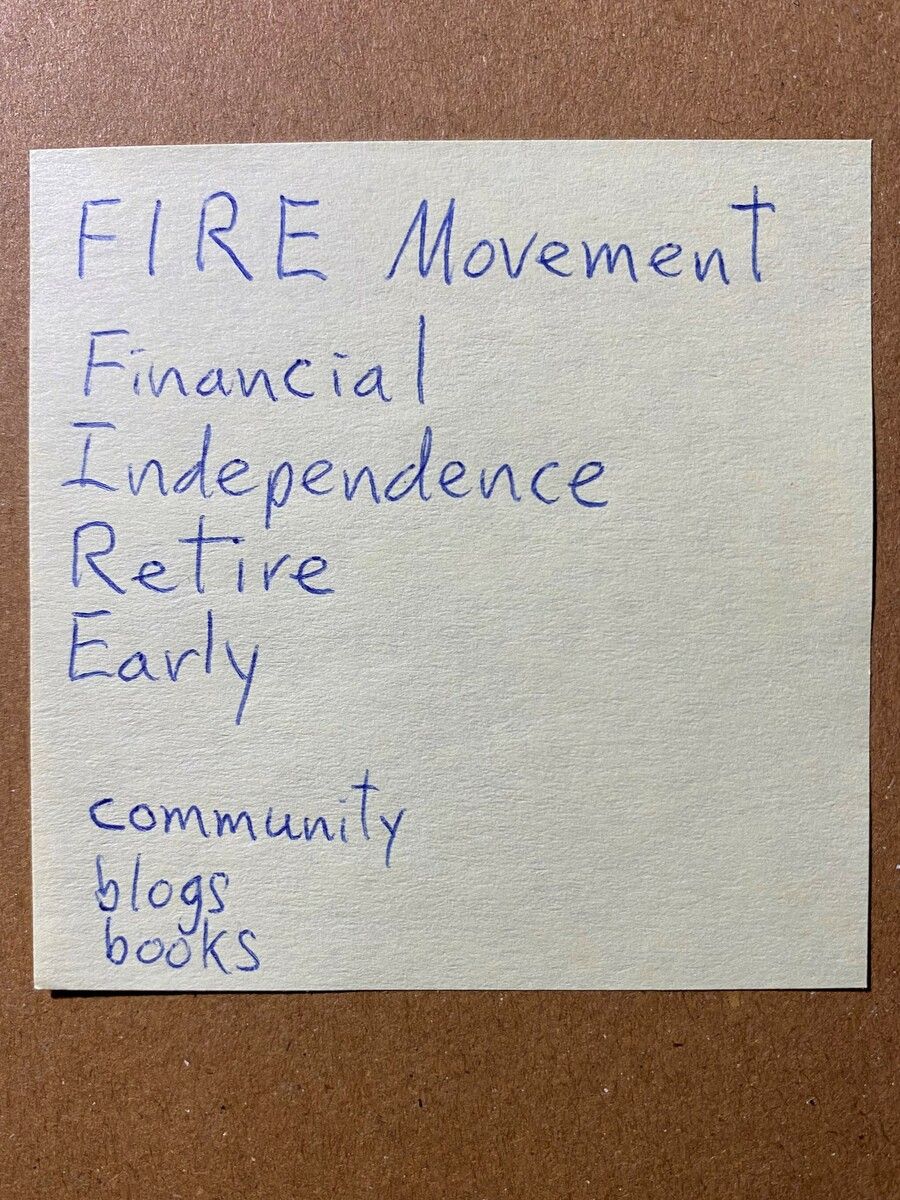 FIRE Movement
Financial
Independence
Retire
Early
community
blogs
books